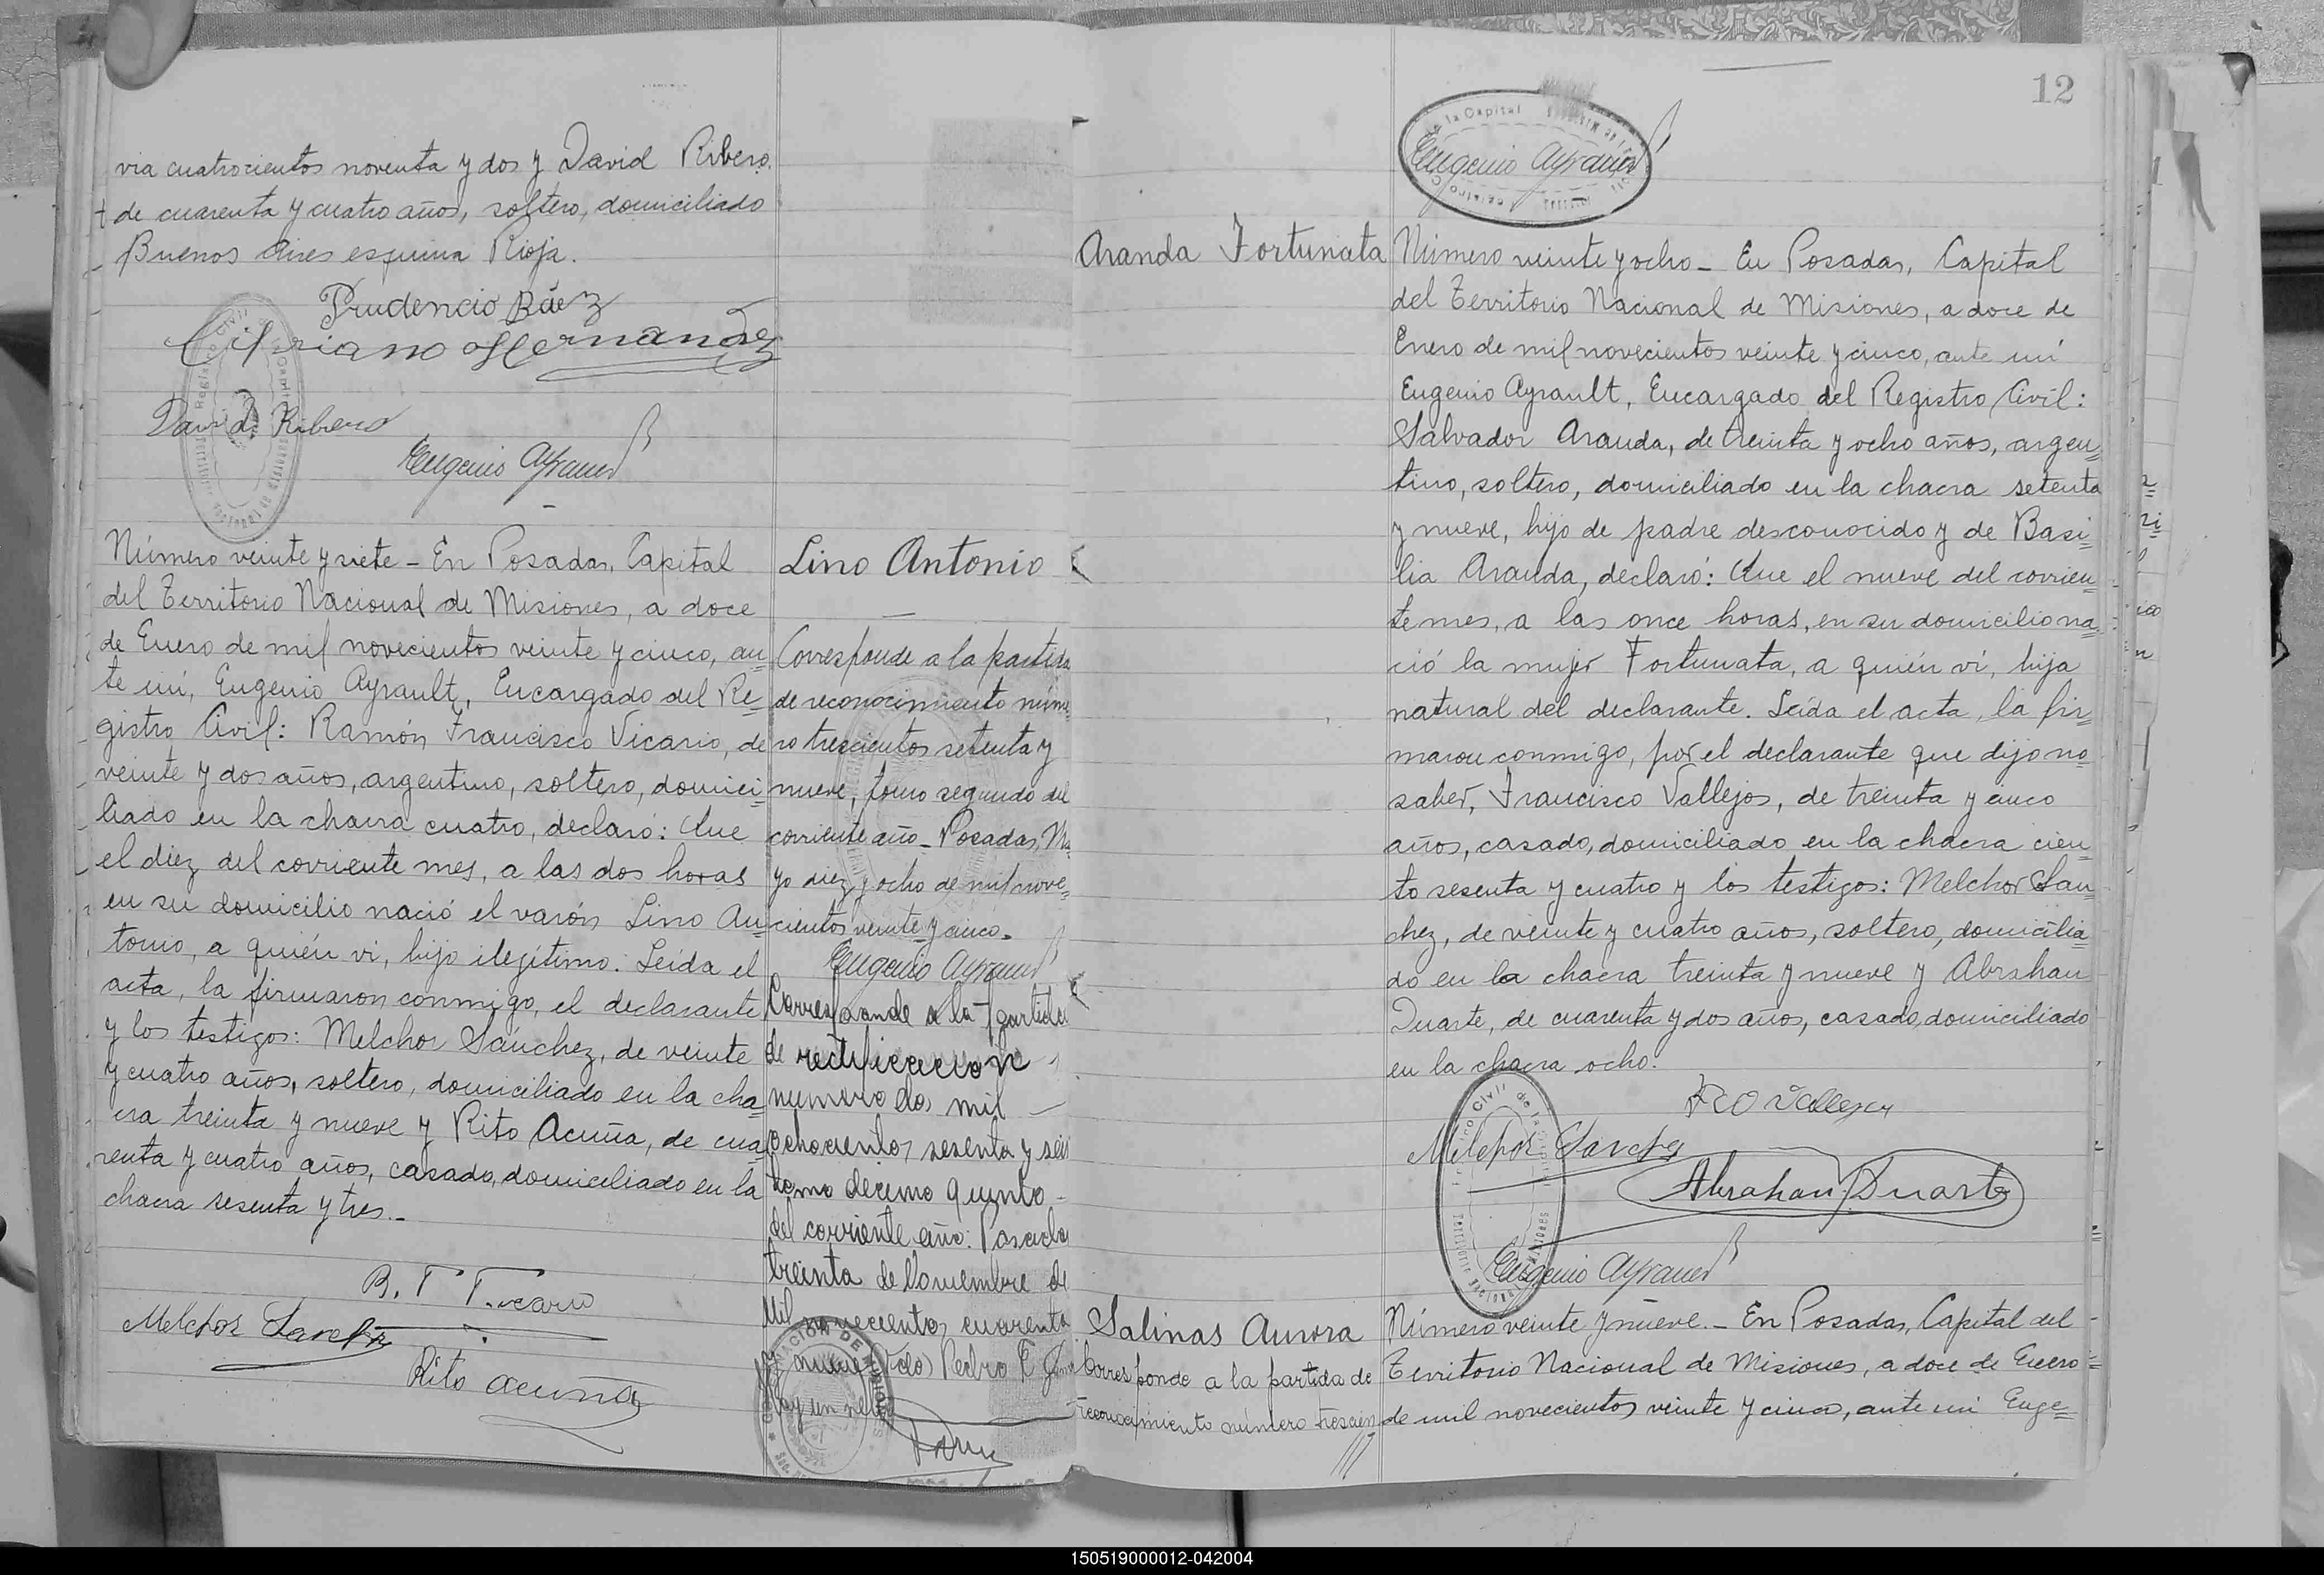 via cuatrocientos noventa y dos y David Ribero,
de cuarenta y cuatro años, soltero, domiciliado
Buenos Aires esquina Rioja.
Prudencio Báez
Cipriano Hernandez
David Ribero
Eugenio Ayrault
Número veinte y siete - En Posadas, Capital
del Territorio Nacional de Misiones, a doce
de Enero de mil novecientos veinte y cinco, an=
te mí, Eugenio Ayrault, Encargado del Re=
gistro Civil: Ramón Francisco Vicario, de
veinte y dos años, argentino, soltero, domici=
liado en la chacra cuatro, declaró: Que
el diez del corriente mes, a las dos horas
en su domicilio nació el varón Lino An=
tonio, a quién vi, hijo ilegítimo. Leída el
acta, la firmaron conmigo, el declarante
y los testigos: Melchor Sánchez, de veinte
y cuatro años, soltero, domiciliado en la cha=
cra treinta y nueve y Rito Acuña, de cua=
renta y cuatro años, casado, domiciliado en la
chacra sesenta y tres.-
Melchor Sanchez
Rito Acuña
Lino Antonio
Corresponde a la partida
de reconocimiento núme=
ro trescientos setenta y
nueve, tomo segundo del
corriente año - Posadas, Ma=
yo diez y ocho de mil nove=
cientos veinte y cinco.
Eugenio Ayrault
Corresponde a la partida
de rectificacion
numero dos mil
ochocientos sesenta y seis
tomo décimo quinto
del corriente año: Posadas
treinta de Noviembre de
Mil novecientos cuarenta
y nueve Pedro
12
de la Capital
Eugenio Ayrault
Aranda Fortunata
Número veinte y ocho - En Posadas, Capital
del Territorio Nacional de Misiones, a doce de
Enero de mil novecientos veinte y cinco, ante mí
Eugenio Ayrault, Encargado del Registro Civil:
Salvador Aranda, de treinta y ocho años, argen=
tino, soltero, domiciliado en la chacra setenta
y nueve, hijo de padre desconocido y de Basi=
lia Aranda, declaró: Que el nueve del corrien=
te mes, a las once horas, en su domicilio na=
ció la mujer Fortunata, a quién ví, hija
natural del declarante. Leída el acta, la fir=
maron conmigo, por el declarante que dijo no
saber, Francisco Vallejos, de treinta y cinco
años, casado, domiciliado en la chacra cien=
to sesenta y cuatro y los testigos: Melchor San=
chez, de veinte y cuatro años, soltero, domicilia=
do en la chacra treinta y nueve y Abrahan
Duarte, de cuarenta y dos años, casado, domiciliado
en la chacra ocho.
Fco Vallejos
Melchor Sanchez
Abrahan Duarte
Eugenio Ayrault
Salinas Aurora
Corresponde a la partida de
reconocimiento número trescien
Número veinte y nueve.- En Posadas, Capital del
Territorio Nacional de Misiones, a doce de Enero
de mil novecientos veinte y cinco, ante mi Euge=
150519000012-042004